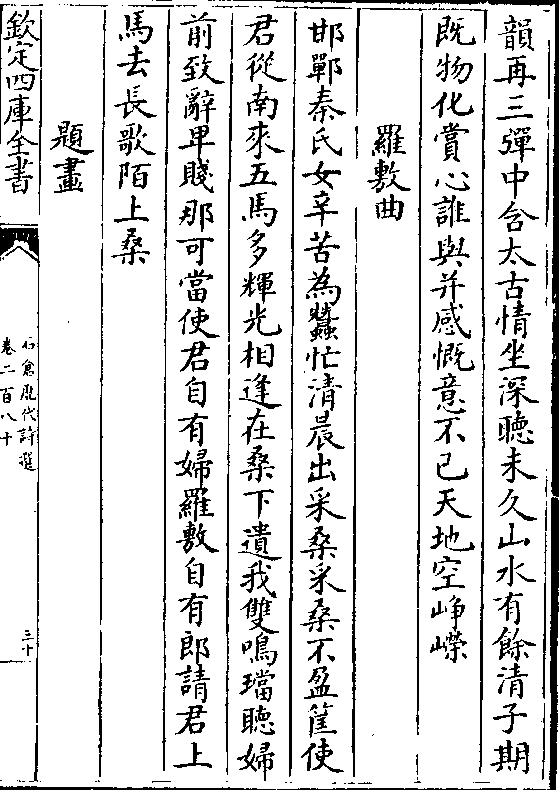 韻再三彈中含太古情坐深聴未久山水有餘清子期
既物化賞心誰與并感慨意不已天地空崢嶸
羅敷曲
邯鄲秦氏女辛苦為蠶忙清晨出采桑采桑不盈筐使
君從南來五馬多輝光相逢在桑下遺我雙鳴璫聴婦
前致辭卑賤那可當使君自有婦羅敷自有郎請君上
馬去長歌陌上桑
題畫
欽定四庫全書
石倉歷代詩選
卷二百八十
三十